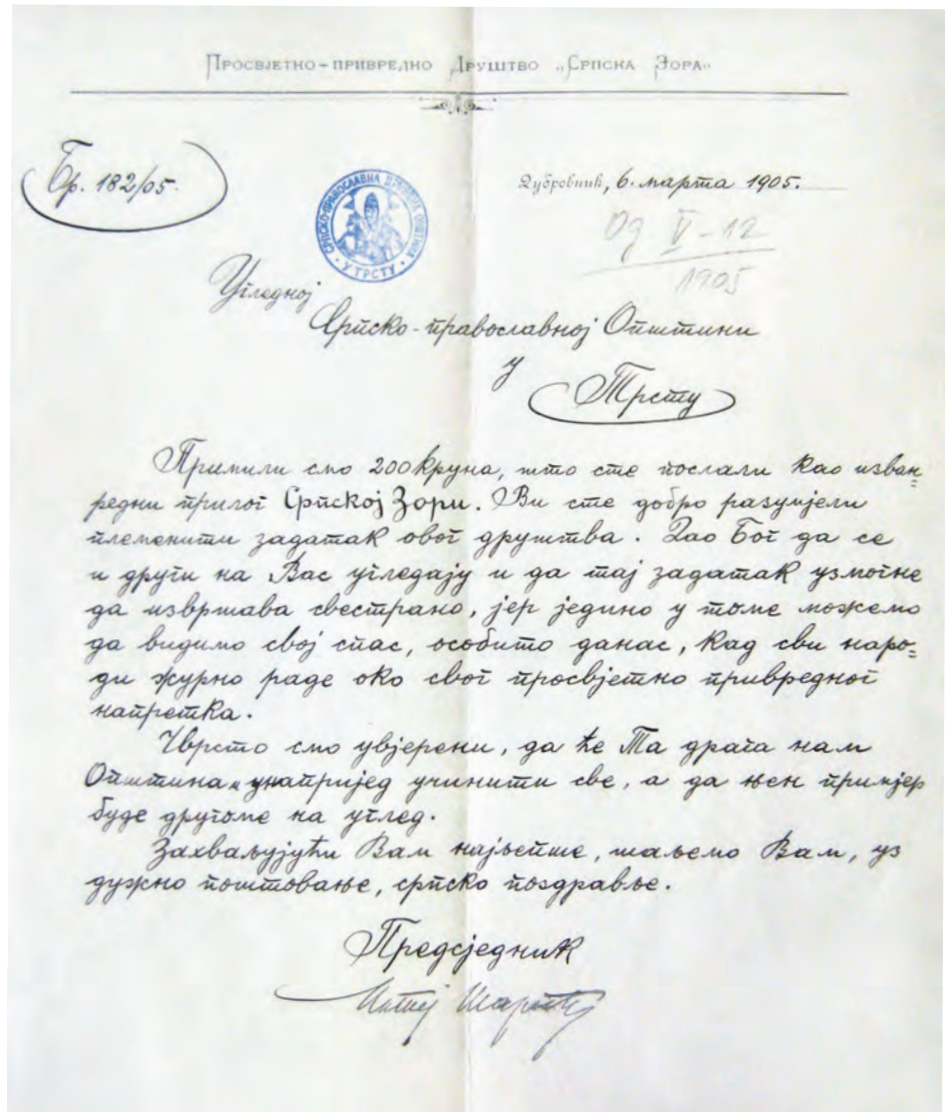 Просвјетно-привредно Друштво „Српска Зора“
Бр. 182/05.
СРПСКО-ПРАВОСЛАВНА ЦРКВЕНА ОПШТИНА
У ТРСТУ
Дубровник, 6. марта 1905.
Од V-12
1905
Угледној
Српско-православној Општини
у
Трсту
Примили смо 200 круна, што сте послали као изван=
редни прилог Српској Зори. Ви сте добро разумјели
племенити задатак овог друштва. Дао Бог да се
и други на Вас угледају и да тај задатак узмогне
да извршава свестрано, јер једино у томе можемо
да видимо свој спас, особито данас, кад сви наро=
ди журно раде око свог просвјетно привредног
напретка.
Чврсто смо увјерени, да ће Та драга нам
Општина и унапријед учинити све, а да њен примјер
буде другоме на углед.
Захваљујући Вам најљепше, шаљемо Вам, уз
дужно поштовање, српско поздравље.
Предсједник